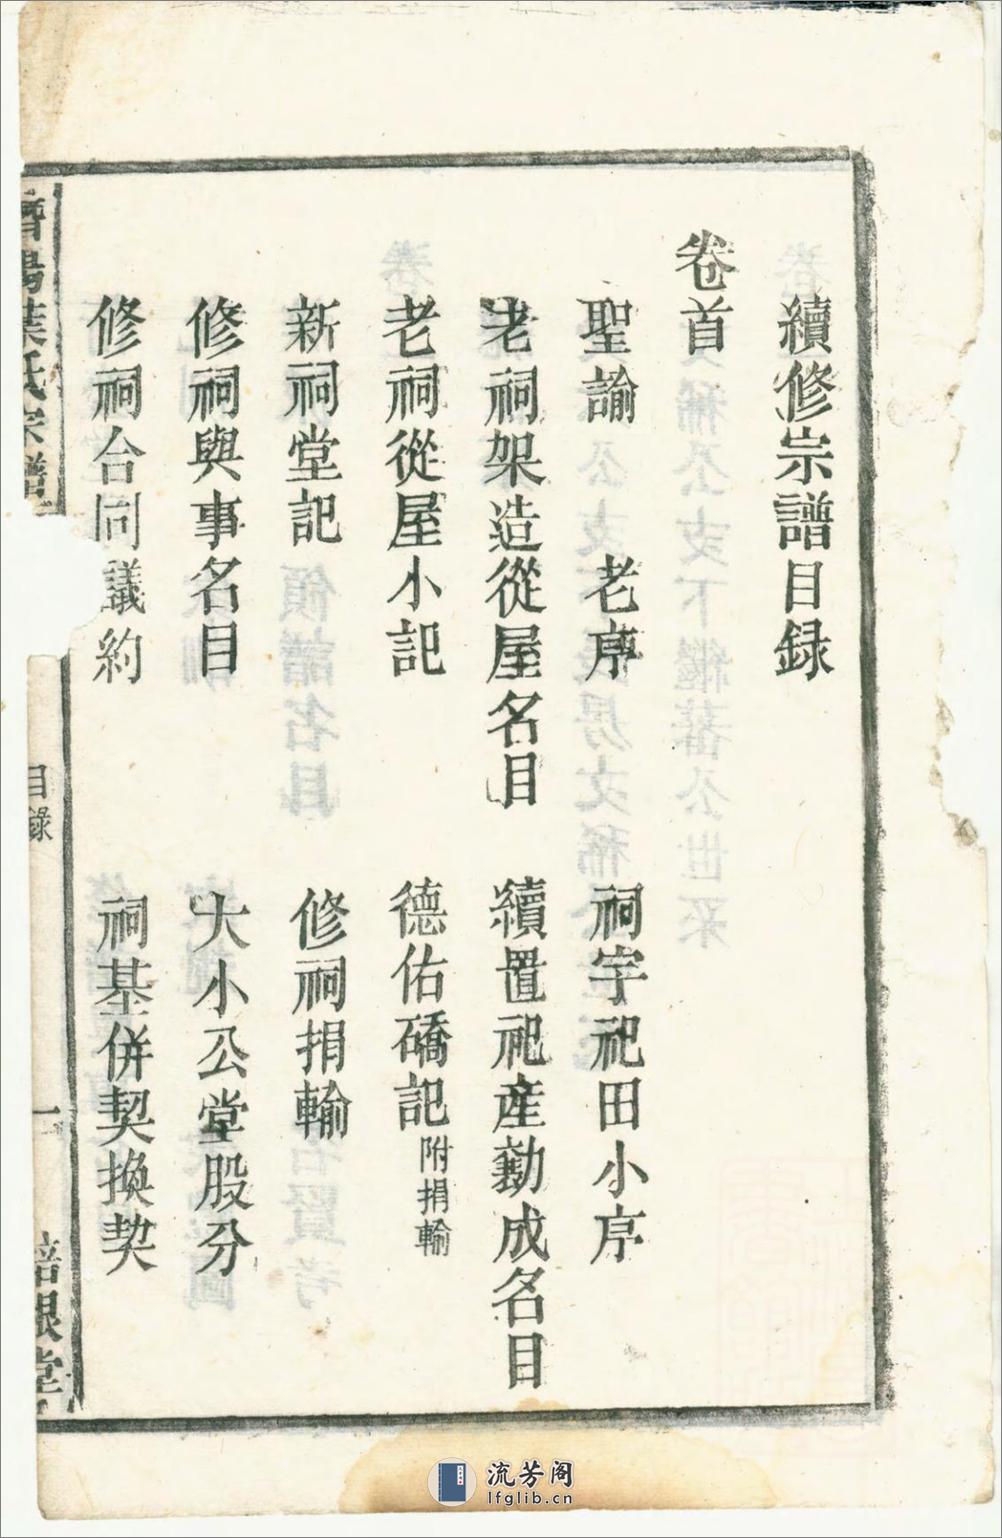 續修宗譜目录
卷首
聖諭　老序　祠宇祀田小序
老祠架造從屋名目　續置祀產勷成名目
老祠從屋小記　德佑礄記附捐輸
新祠堂記　修祠捐輸
修祠與事名目　大小公堂股分
修祠合同議約　祠基併契換契
濟陽葉氏宗譜　目錄　一　培根堂
流芳阁
lfglib.cn